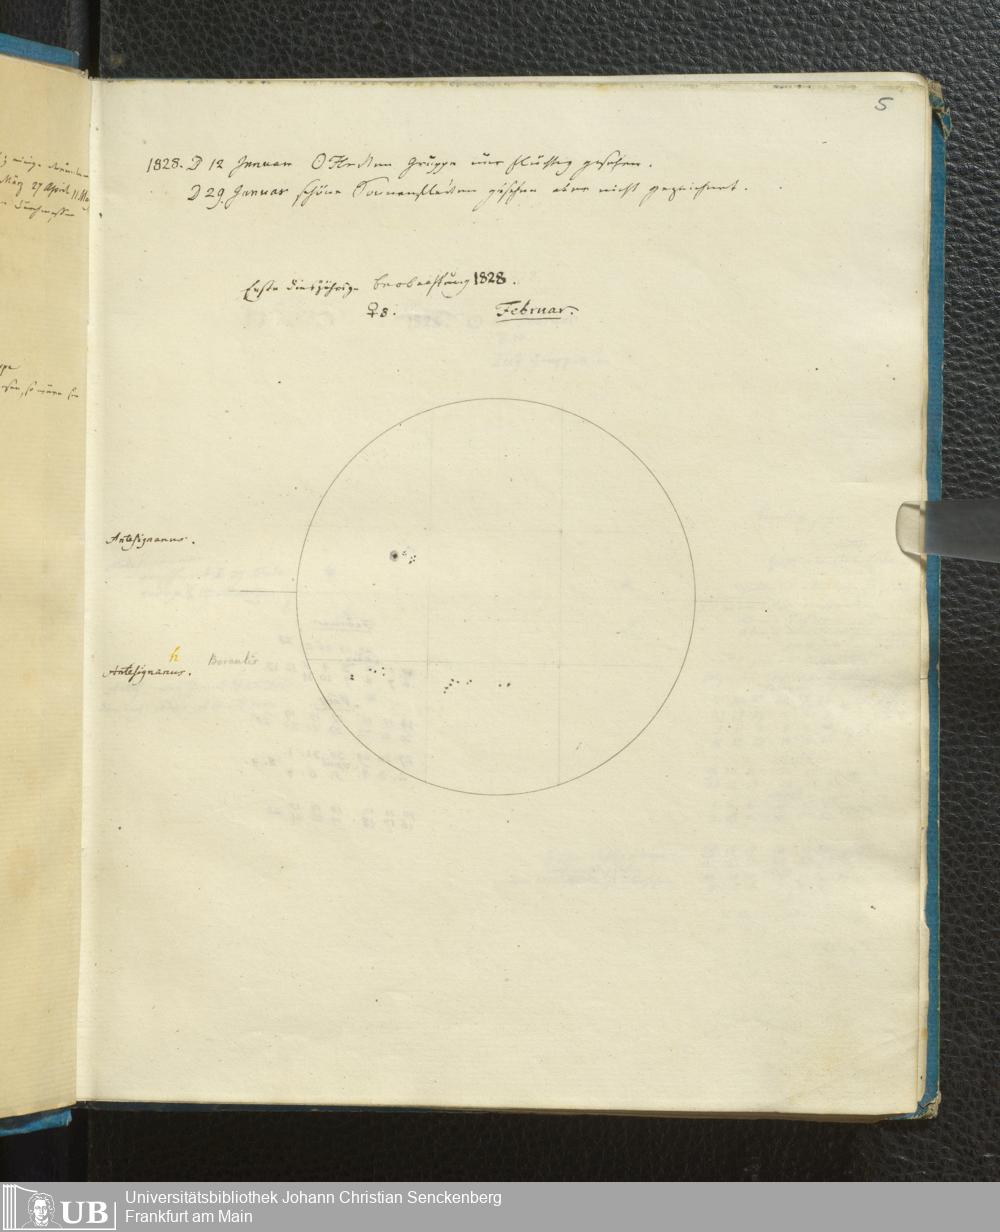 5
1828. D 12 Januar ʘ Flecken Gruppe nur flüchtig gesehen.
D 29. Januar schöne Sonnenflecken gesehen aber nicht gezeichnet.
Erste diesjährige Beobachtung 1828.
♀ 8. Februar.
Antesignanus.
h
Borealis
Antesignanus.
März 27 April 11 Mai
Durchmesser
UB
Universitätsbibliothek Johann Christian Senckenberg
Frankfurt am Main